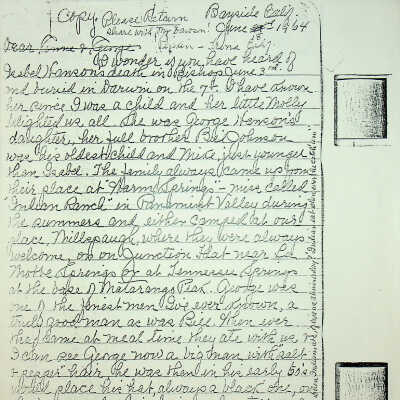 (Copy) Please Return Bayside Calif
Share with Mr. June 1964
Dear
I wonder if you have heard of
Isabel Hanson's death in Bishop June 3rd
and buried in Darwin on the 7th. I have known
her since I was a child and her little Molly
delighted us all. She was George Hanson's
daughter, her full brother Bill Johnson
was his oldest child and Mike, just younger
than Isabel. The family always came up from
their place at "Warm Springs - miss called
"Indian Ranch" in Panamint Valley during
the summers and either camped at our
place Millspaugh, where they were always
welcome, or on Junction Flat near
Springs or at Tennessee Springs
at the base of Matarango Peak. George was
one of the finest men I've ever known, a
truly good man as was Bill. When ever
they came at meal time they ate with us,
I can see George now a big man with "salt
& pepper" hair. He was then in his early 50's
would place his hat, always a black one, on